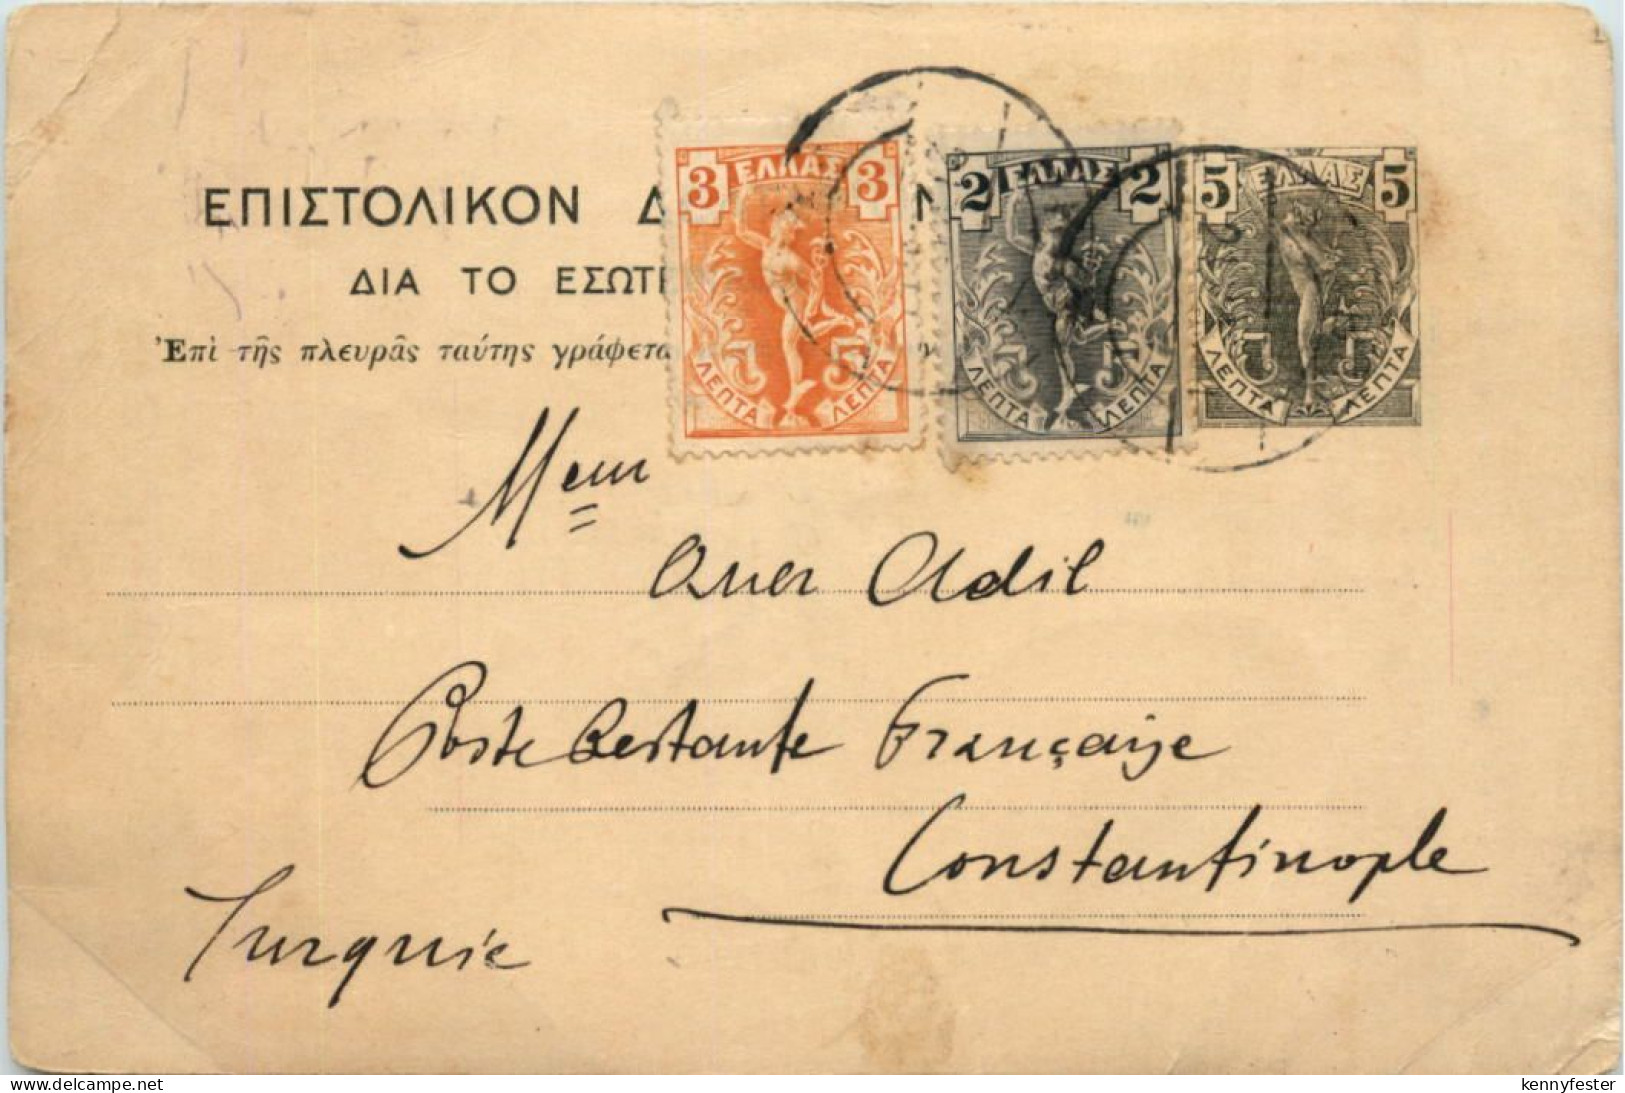 ΕΠΙΣΤΟΛΙΚΟΝ Δ
ΔΙΑ ΤΟ ΕΣΩΤΕ
Ἐπὶ τῆς πλευρᾶς ταύτης γράφετα
3 ΕΛΛΑΣ 3
ΛΕΠΤΑ ΛΕΠΤΑ
2 ΕΛΛΑΣ 2
ΛΕΠΤΑ ΛΕΠΤΑ
5 ΕΛΛΑΣ 5
ΛΕΠΤΑ ΛΕΠΤΑ
Adil
Poste Restante Française
Constantinople
Turquie
delcampe.net
kennyfester